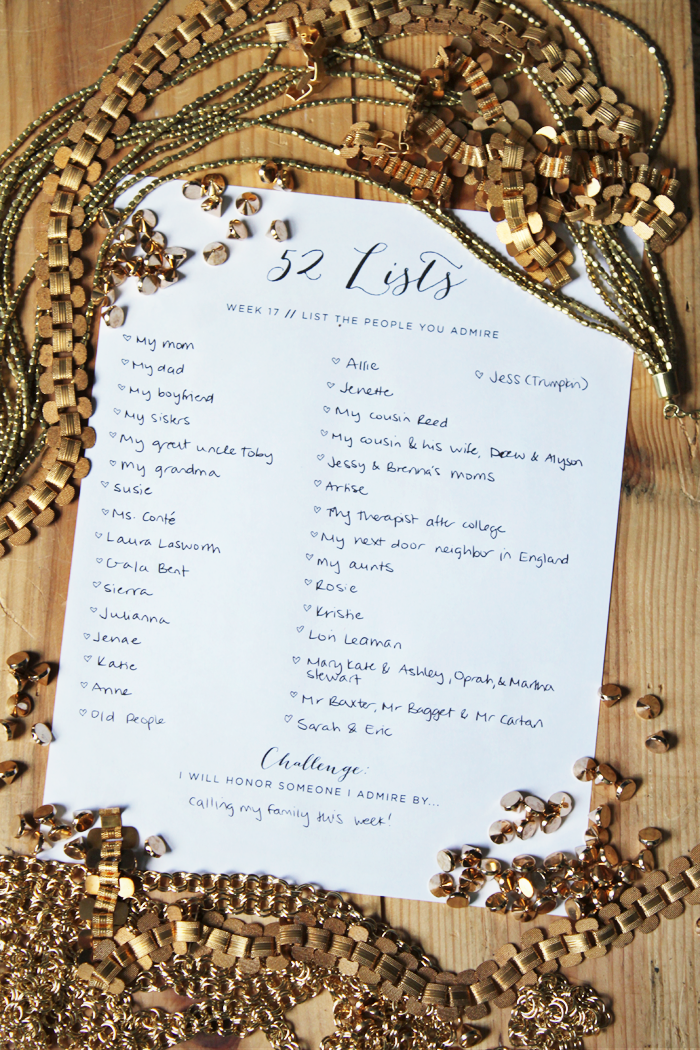 52 Lists
WEEK 17 // LIST THE PEOPLE YOU ADMIRE
♡ My mom
♡ My dad
♡ My boyfriend
♡ My sisters
♡ My great uncle Toby
♡ My grandma
♡ Susie
♡ Ms. Conté
♡ Laura Lasworth
♡ Gala Bent
♡ Sierra
♡ Julianna
♡ Jenae
♡ Katie
♡ Anne
♡ Old People
♡ Allie
♡ Jenette
♡ My cousin Reed
♡ My cousin & his wife, Drew & Alyson
♡ Jessy & Brenna's moms
♡ Artise
♡ My therapist after college
♡ My next door neighbor in England
♡ My aunts
♡ Rosie
♡ Kristie
♡ Lori Leaman
♡ Mary Kate & Ashley, Oprah, & Martha
Stewart
♡ Mr Baxter, Mr Bagget & Mr Cartan
♡ Sarah & Eric
♡ Jess (Trumpkin)
Challenge:
I WILL HONOR SOMEONE I ADMIRE BY...
calling my family this week!